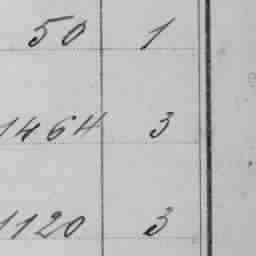 50 1
1464 3
1120 3